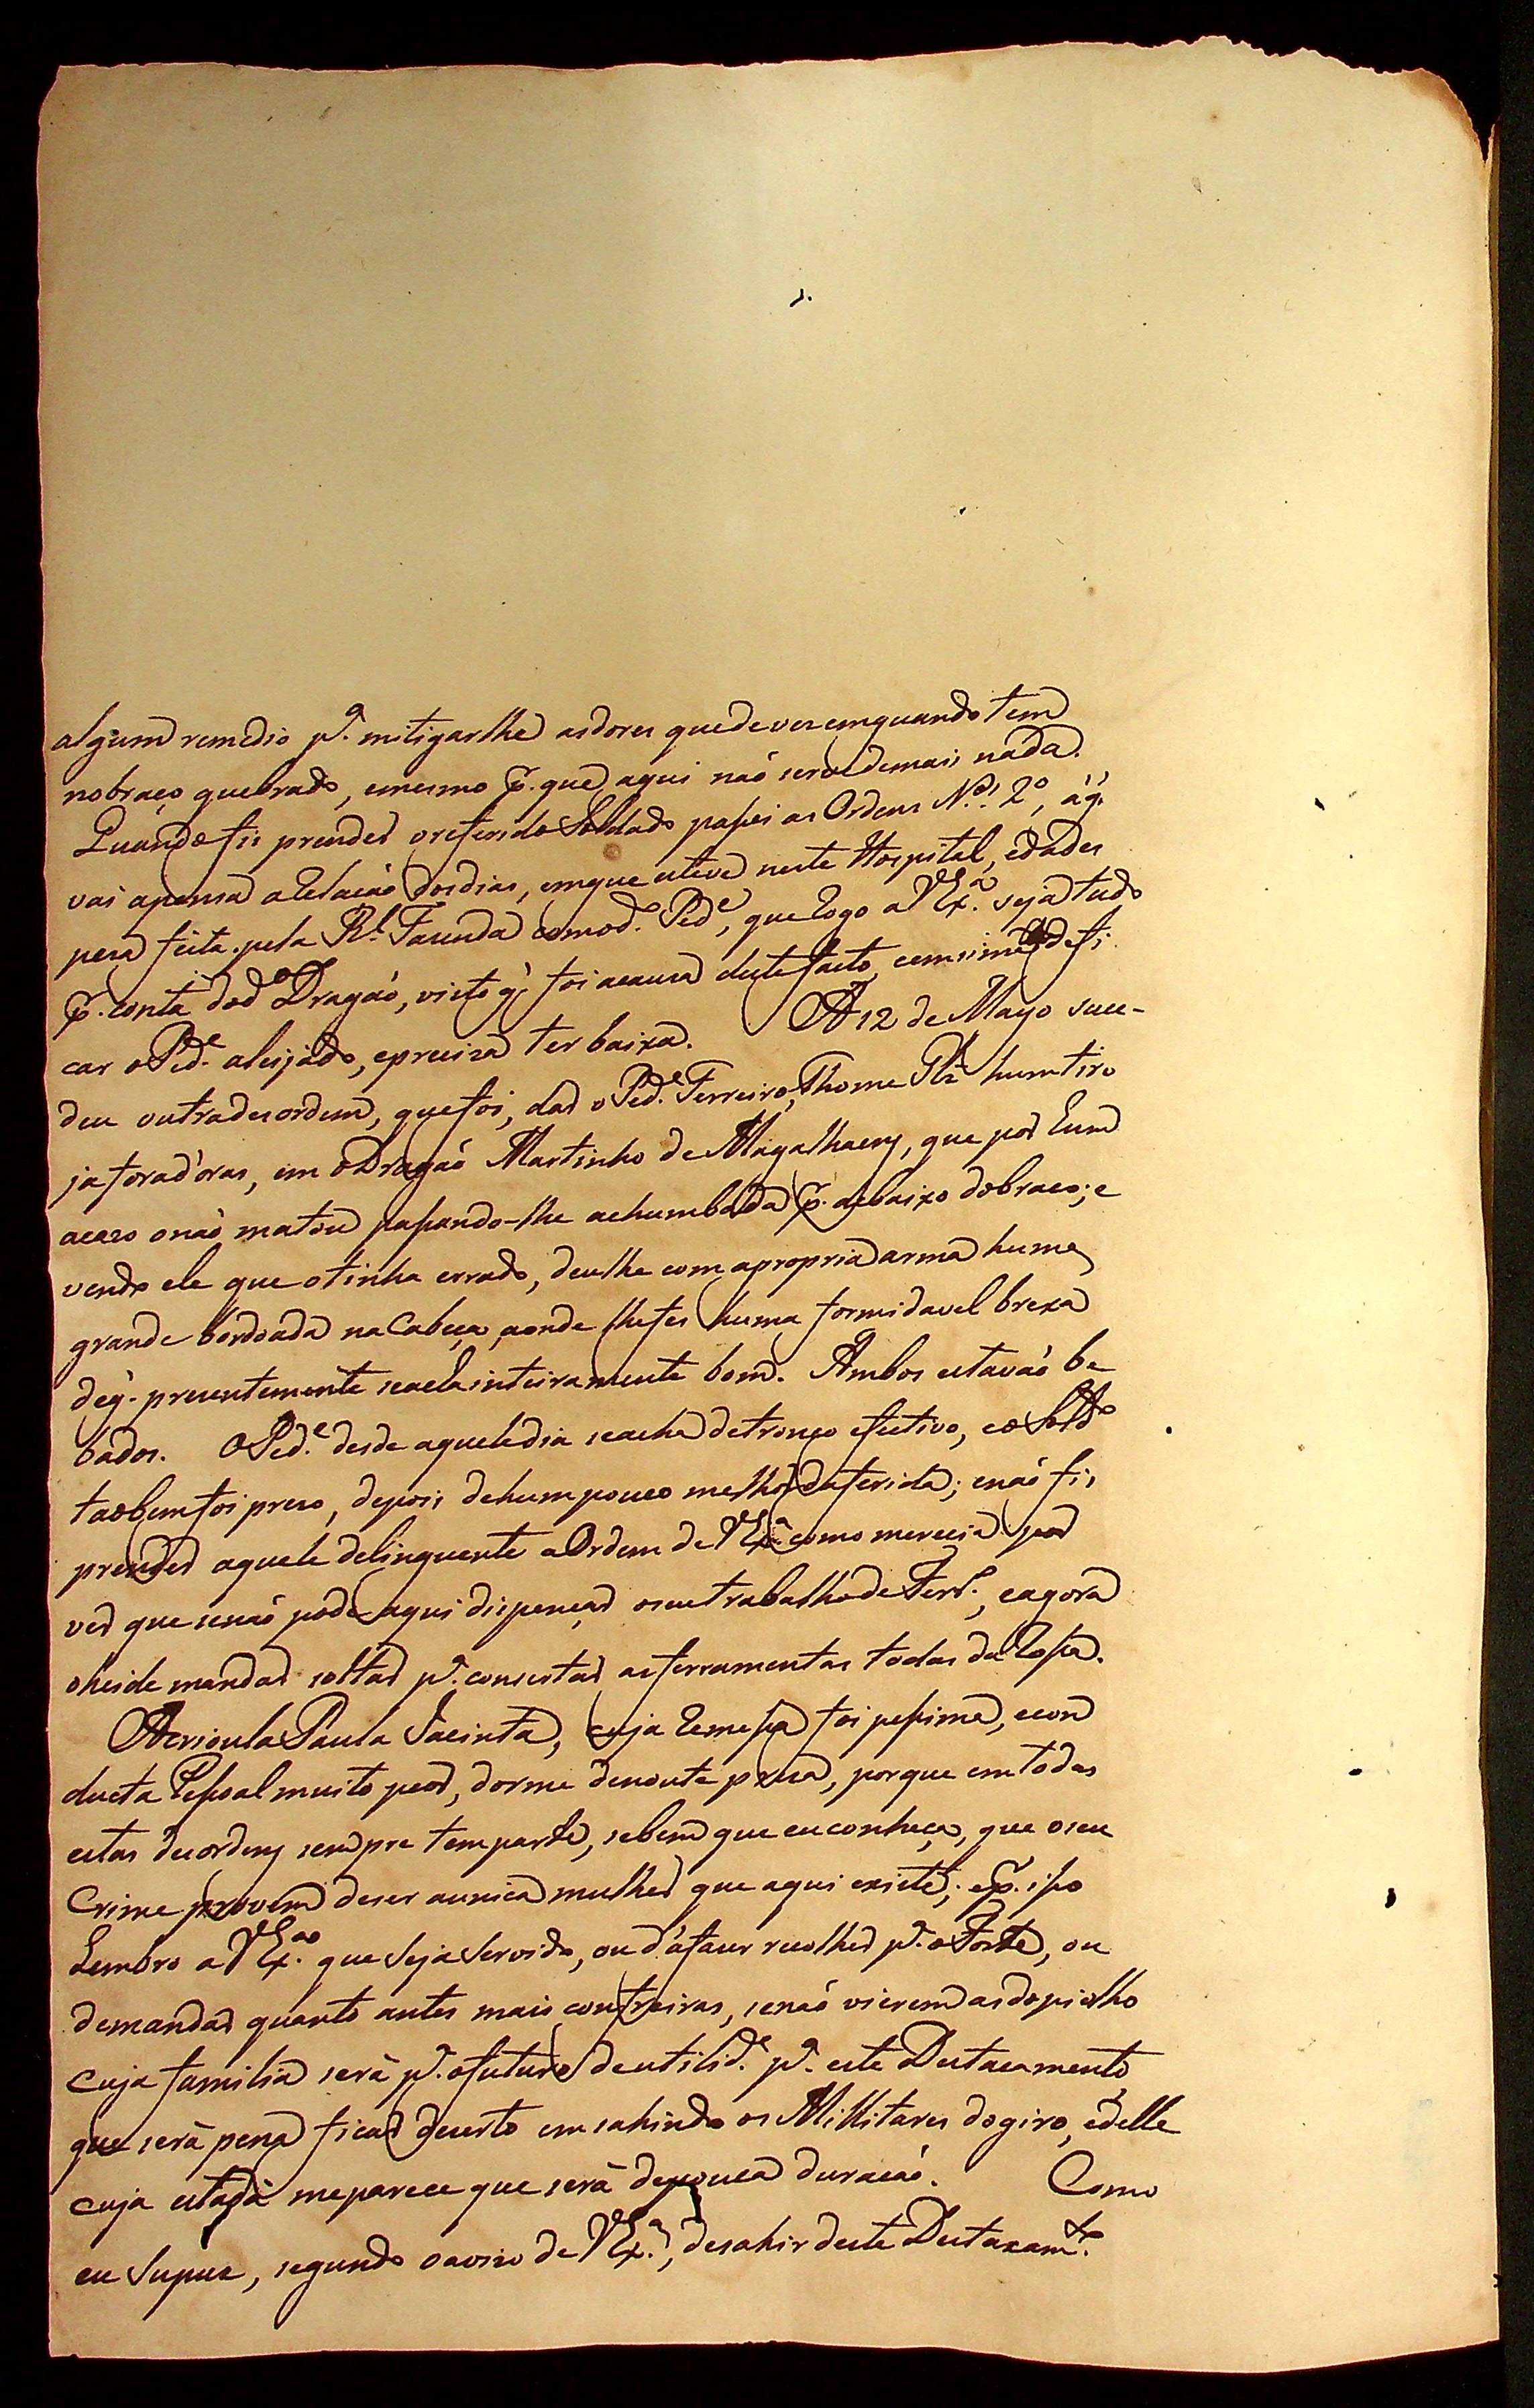 algum remedio p.ª mitigarlhe asdores quedeves emquando tem
nobraço quebrado, emesmo p. que aqui naó servedemais nada.
Quando fis prender oreferido Soldado pasei as Ordens N.º 2º, áq.
vai apensa a relacáo dosdias, emque esteve neste Hospital, edades
peza feita pela R.l Fazenda com o d.º Ped.e, que rogo a VEx.ª seja tudo
p. conta dod.º Dragaó, visto q. foi acauza deste facto, e emsima defi
car oPed.e aleijado, epreciza ter baixa. A 12 de Mayo suce-
deu outra desordem, quefoi, dar o Ped.e Ferreiro, Thome humtiro
ja forad'oras, em oDragaó Martinho de Magalhaens, que por hum
acazo onaó matou pasando-lhe achumbada p. debaixo dobraço; e
vendo ele que otinha errado, deulhe com apropria arma huma
grande bordoada naCabeça, aonde lhefes huma formidavel brexa
deq. prezentemente seacha inteiramente bom. Ambos estavaó be
bados. OPed.e desde aquele dia seacha detronco efectivo, eo Sold.º
taobemfoi prezo, depois dehumpouco melhor daferida; enaó fis
prender aquele delinquente aOrdem de VEx.ª como merecia por
ver que senaó pode aqui dispençar oseutrabalhode Ferr.º, eagora
oheide mandar soltar p.ª consertar asferramentas todas da Rosa.
Acrioula Paula Jacinta, cuja remesa foi pesima, econ
ducta Pesoal muito peor, dorme denoute preza, porque emtodas
estas desordens sempre temparte, sebem que euconheça, que oseu
Crime provem deser aunica mulher que aqui existe; ep. iso
Lembro a VEx.ª que seja servido, ou d'afazer recolher p.ª oForte, ou
demandar quanto antes mais companheiras, senaó vierem asdopiolho
cuja familia será p.ª ofuturo deutilid.e p.ª este Destacamento
que será pena ficar dezerto em sahindo os Millitares dogiro, edelle
cuja estada meparece que será depouca duraçaó. Como
eu Supuz, segundo oavizo de VEx.ª, desahir deste Destacam.to